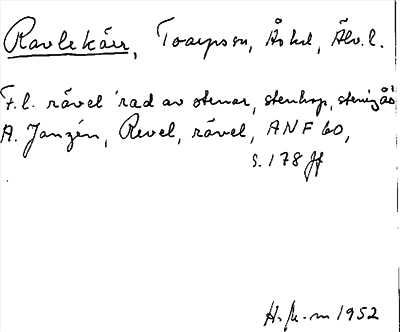 Ravlekärr, Toarpson, Åskl, Älv. l.
F.l. rävel 'rad av stenar, stenhop, stenig ås'
A. Janzén, Revel, rävel, ANF 60,
s. 178 ff
1952